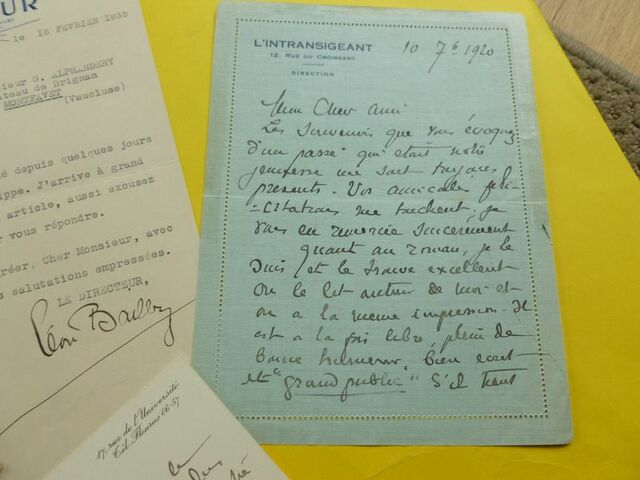 UR
le 16 FEVRIER 1935
sieur G. ALPHANDERY
âteau de Brignan
MONTFAVET
(Vaucluse)
é depuis quelques jours
ippe. J'arrive à grand
article, aussi excusez
r vous répondre.
gréer, Cher Monsieur, avec
s salutations empressées.
LE DIRECTEUR,
Léon Bailby
17, rue de l'Université
Tél. Fleurus 06-57
L'INTRANSIGEANT
12, RUE DU CROISSANT
DIRECTION
10 7b 1920
Mon Cher Ami
Les souvenirs que vous évoquez
d'un passé qui était notre
jeunesse me sont toujours
présents. Vos amicales féli-
-citations me touchent, je
vous en remercie sincèrement
Quant au roman, je le
suis et le trouve excellent
On le lit autour de moi et
on a la même impression. Il
est à la fois libre, plein de
bonne humeur, bien écrit
et "grand public" S'il tient